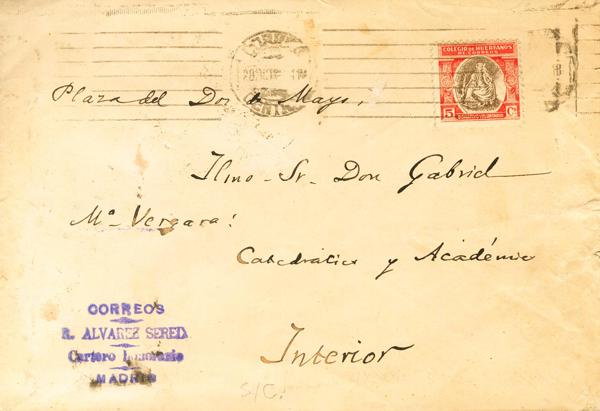 COLEGIO DE HUERFANOS
DE CORREOS
5 Cs
Plaza del Dos de Mayo,
Ilmo. Sr. Don Gabriel
Mª Vergara:
Catedrático y Académico
CORREOS
R. ALVAREZ SEREIX
Cartero honorario
MADRID
Interior
S/C.